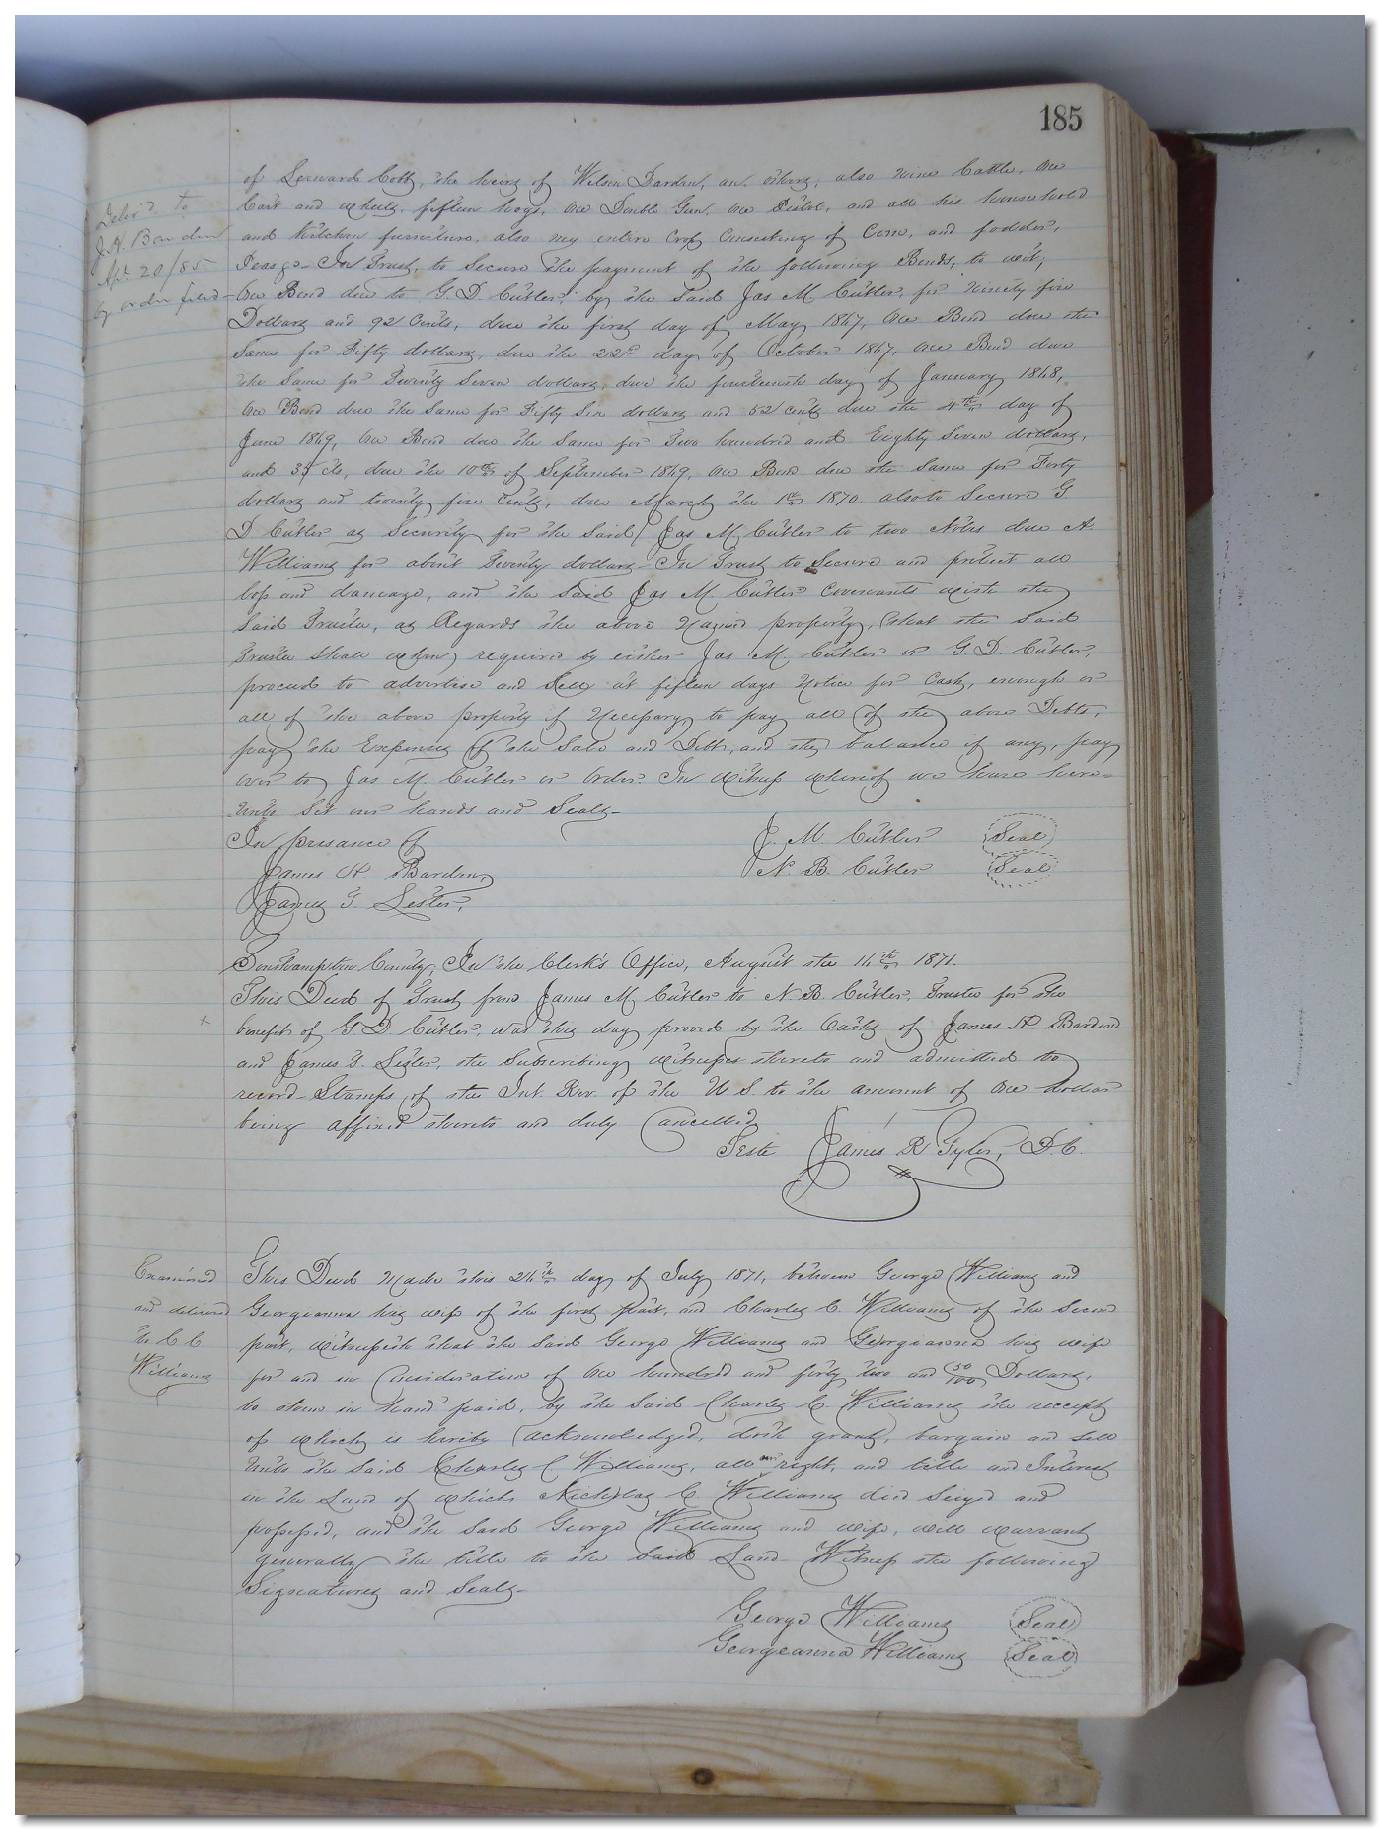 185
of Leeward Cobb, the heirs of Wilson Darden, and others, also nine Cattle, one
Cart and wheels, fifteen hogs, one Double Gun, one Pistol, and all his household
and kitchen furniture, also my entire crop consisting of Corn, and fodder,
Peas &c. In Trust, to secure the payment of the following Bonds, to wit;
One Bond due to G. D. Cutler, by the said Jas M Cutler, for ninety five
Dollars and 92 Cents, due the first day of May 1867, One Bond due the
Same for Fifty dollars, due the 22d day of October 1867, One Bond due
the Same for Twenty Seven dollars, due the fourteenth day of January 1868,
One Bond due the Same for Fifty Six dollars and 52 cents due the 4th day of
June 1869, One Bond due the Same for Two hundred and Eighty Seven dollars,
and 35 cts, due the 10th of September 1869, One Bond due the Same for Forty
dollars and twenty five Cents, due March the 1st 1870. also to Secure G
D Cutler as Security for the Said Jas M Cutler to two Notes due A.
Williams for about Twenty dollars. In Trust to Secure and protect all
loss and damage, and the Said Jas M Cutler covenants with the
Said Trustee, as Regards the above Named property, that the said
Trustee shall when required by either Jas. M. Cutler or G. D. Cutler,
proceed to advertise and Sell at fifteen days Notice for Cash, enough or
all of the above property if Necessary, to pay all of the above Debts,
pay the Expenses of the Sale and Debts, and the balance if any, pay
over to Jas M. Cutler or Order. In witness whereof we have here-
unto Set our hands and Seals-
In presance of
J. M Cutler Seal
James H Barden
N. B. Cutler Seal
James T. Lester,
Deliv'd to
J. H. Barden
Apl 20/85
by order filed
Southampton County, In the Clerk's Office, August the 14th 1871.
This Deed of Trust from James M Cutler to N B Cutler, Trustee for the
+
benefit of G D Cutler, was this day proved by the Oaths of James H Barden
and James T. Lester, the Subscribing witnesses thereto and admitted to
record. Stamps of the Int. Rev. of the U S. to the amount of One dollar
being affixed thereto and duly Cancelled
Teste James R Tyler, D.C.
Examined
and delivered
to C C
Williams
This Deed Made this 24th day of July 1871, between George Williams and
Georgeanna his wife of the first part, and Charles C. Williams of the Second
part, witnesseth that the said George Williams and Georgeanna his wife
for and in Consideration of One hundred and forty two and 50/100 Dollars,
to them in hand paid, by the said Charles C. Williams the receipt
of which is hereby acknowledged, doth grant, bargain and sell
unto the said Charles C Williams, all our right, and title and Interest
in the Land of which Nicholas C. Williams died Seized and
possessed, and the Said George Williams and wife, will warrant
generally the title to the said Land. Witness the following
Signatures and Seals-
George Williams Seal
Georgeanna Williams Seal